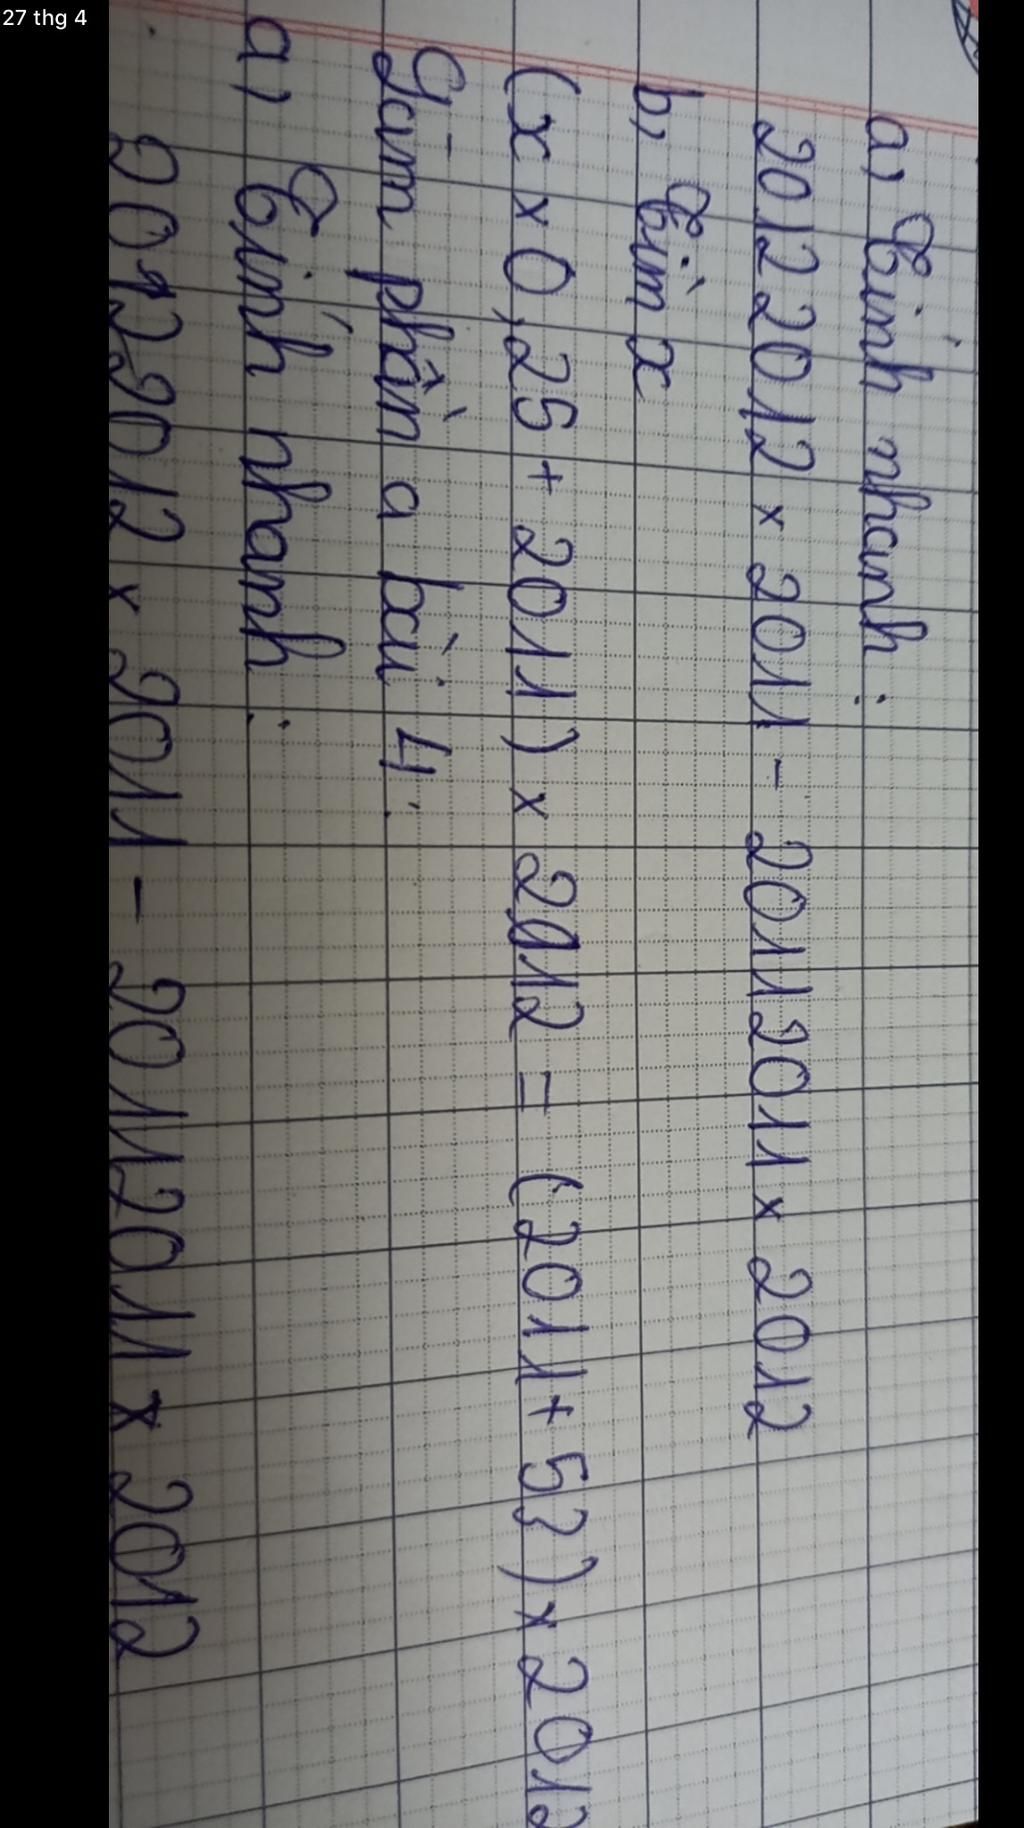 27 thg 4
a) Tính nhanh:
20122012 x 2011 - 20112011 x 2012
b) Tìm x
(x x 0,25 + 2011) x 2012 = (2011 + 53) x 2012
phần a bài 4:
a) Tính nhanh:
20122012 x 2011 - 20112011 x 2012